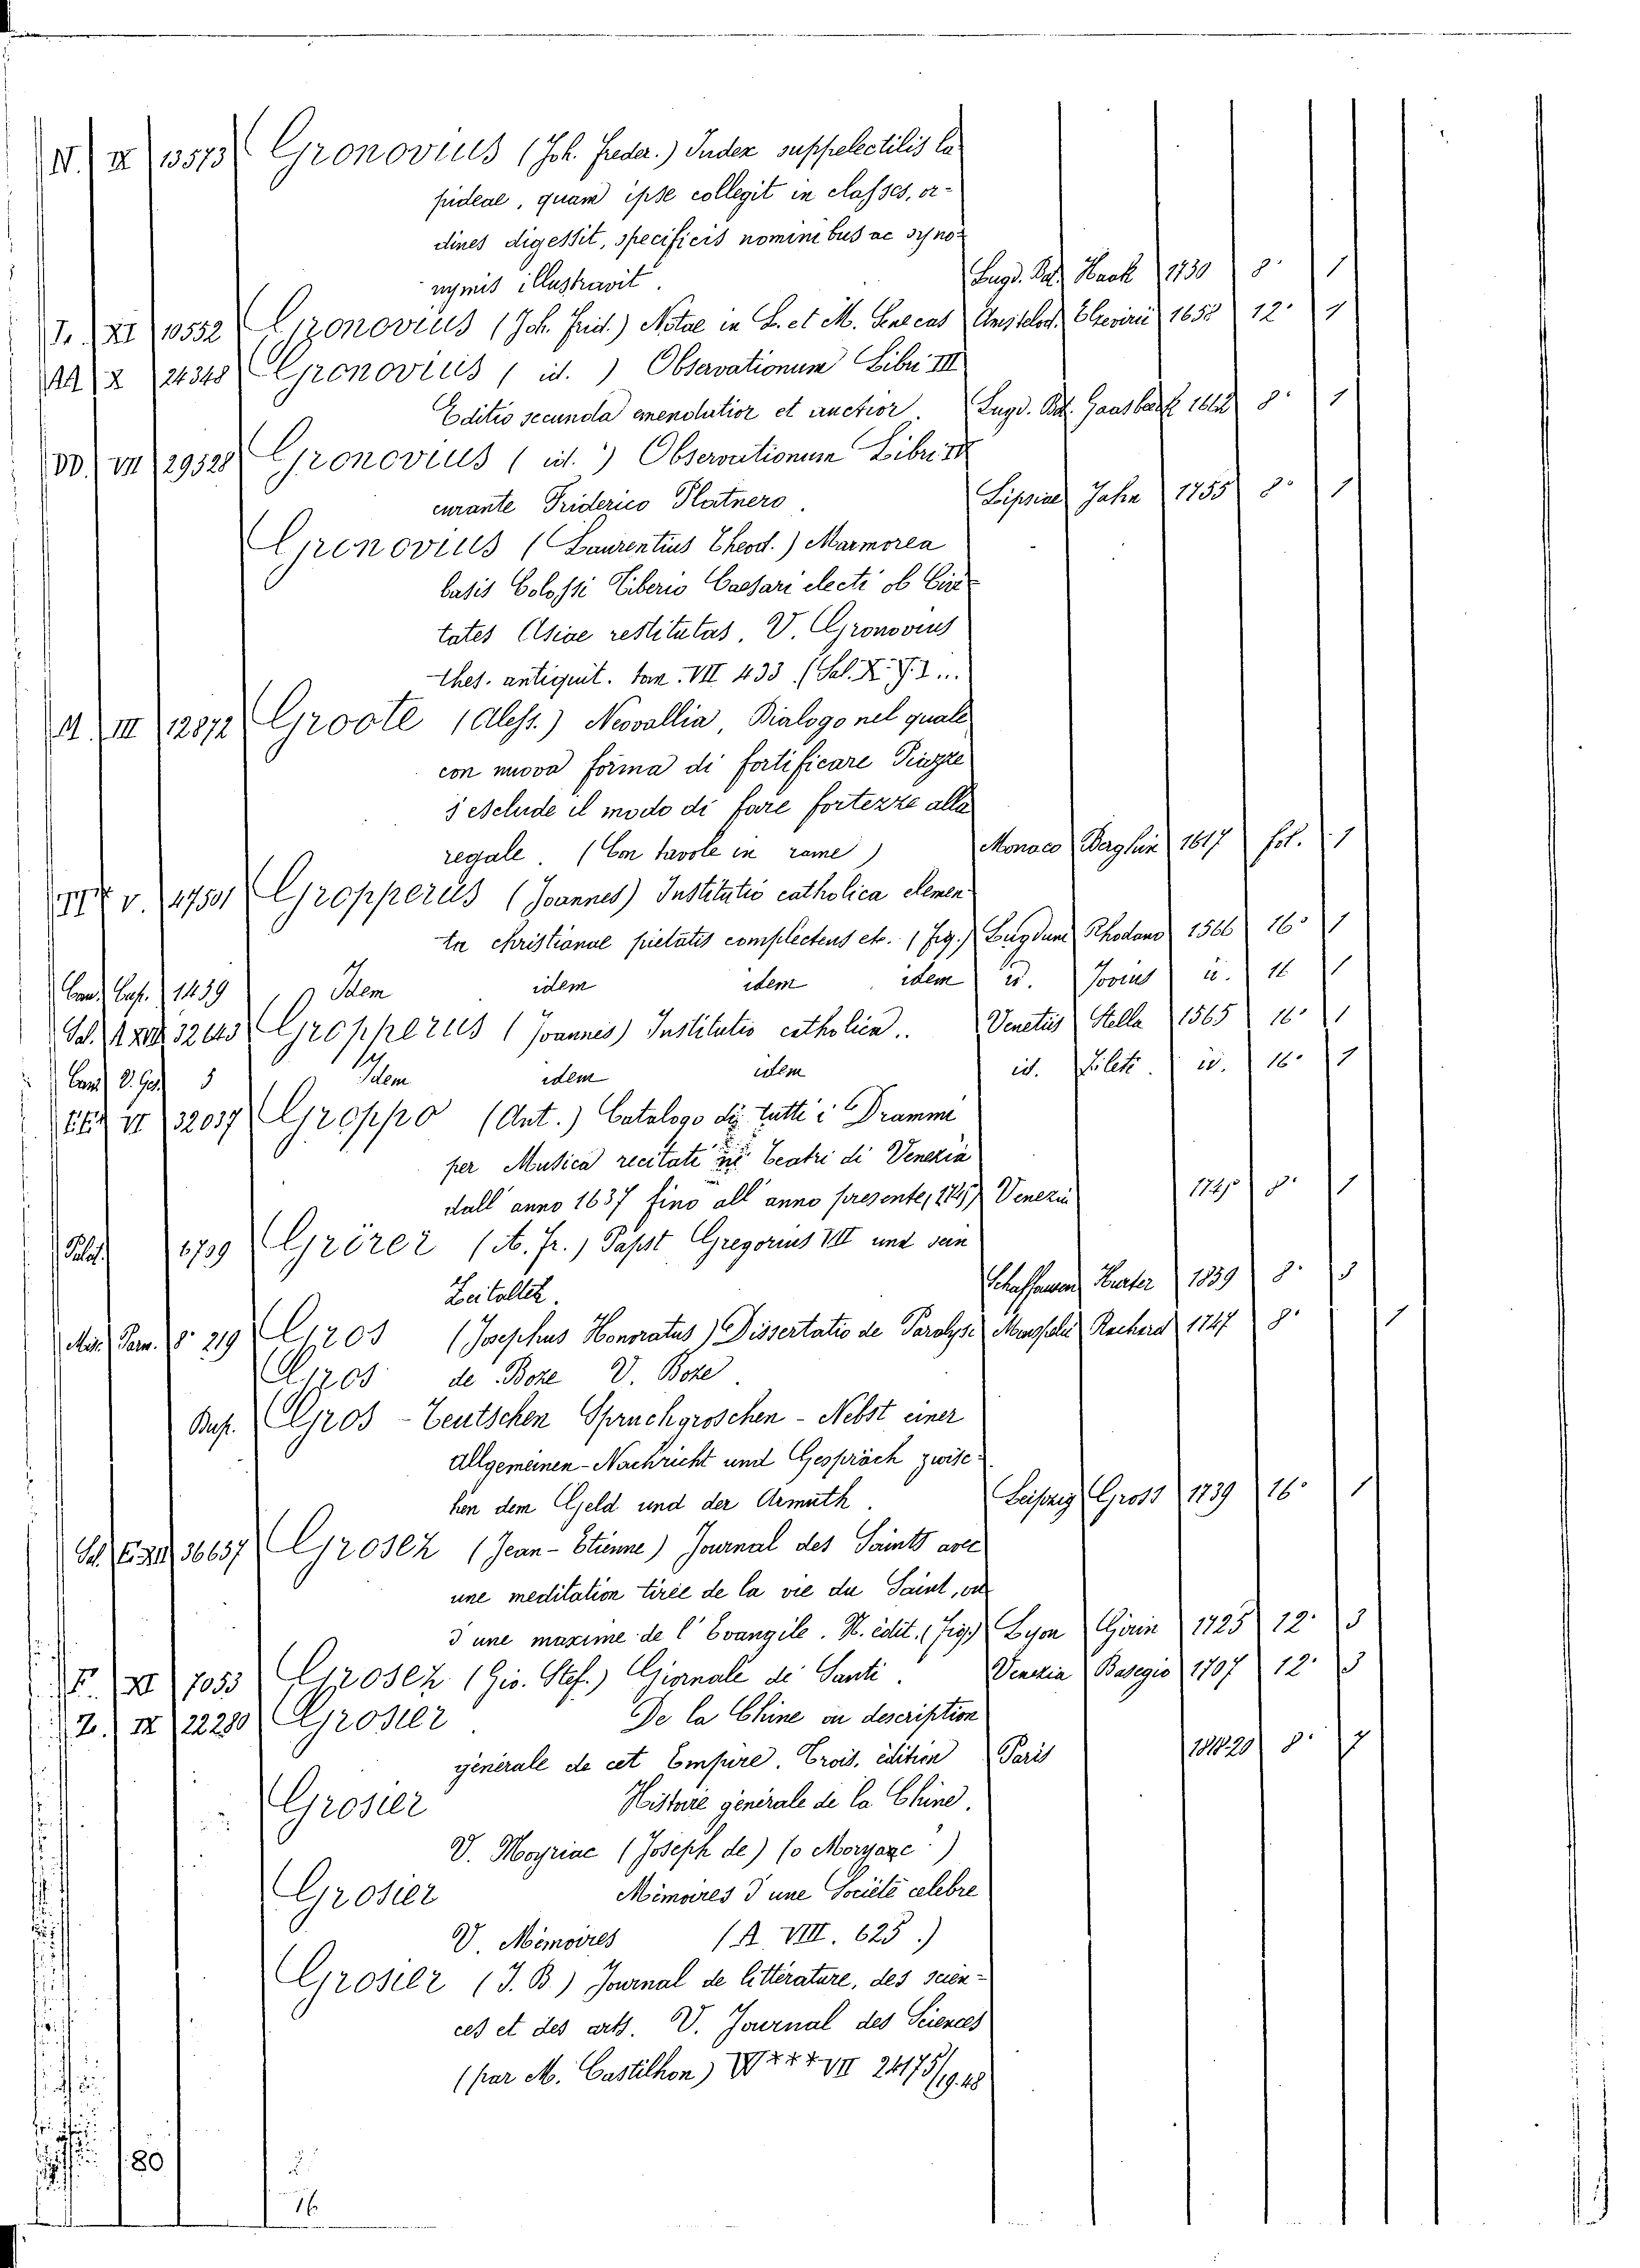 N. IX 13573 Gronovius (Joh. Freder.) Index suppelectilis la
pideae, quam ipse collegit in classes, or-
dines digessit, specificis nominibus ac syno-
nymis illustravit. Lugd. Bat. Haak 1750 8° 1
I. XI 10552 Gronovius (Joh. Frid.) Notae in L. et M. Senecas Amstelod. Elzevirii 1658 12° 1
AA X 24348 Gronovius (id.) Observationum Libri III
Editio secunda emendatior et auctior. Lugd. Bat. Gaasbeek 1662 8° 1
DD. VII 29328 Gronovius (id.) Observationum Libri IV
curante Friderico Platnero. Lipsiae Jahn 1755 8° 1
Gronovius (Laurentius Theod.) Marmorea
basis Colossi Tiberio Caesari electi ob Civi-
tates Asiae restitutas. V. Gronovius
thes. antiquit. tom. VII 433. (Sal.
A. III 12872 Groote (Aless.) Neovallia, Dialogo nel quale
con nuova forma di fortificare Piazze
s'esclude il modo di fare fortezze alla
regale. (Con tavole in rame) Monaco Berghin 1617 fol. 1
V. 47501 Gropperus (Joannes) Institutio catholica elemen
ta christianae pietatis complectens etc. (Fig.) Lugduni Rhodano 1566 16° 1
Cand. Cap. 1439 Idem idem idem idem id. Jovius id. 16 1
Sal. A XVII 32643 Gropperus (Joannes) Institutio catholica.. Venetiis Stella 1565 16° 1
Cand. V. Ges. 5 Idem idem idem id. Ziletti. id. 16° 1
EEE VI 32037 Groppo (Ant.) Catalogo di tutti i Drammi
per Musica recitati ne' Teatri di Venezia
dall' anno 1637 fino all' anno presente, 1745) Venezia 1745 8° 1
Palat. 6739 Grörer (A. Fr.) Papst Gregorius VII und sein
Zeitalter. Schaffausen Hurter 1859 8° 3
Misc. Parm. 8° 219 Gros (Josephus Honoratus) Dissertatio de Paralysi Monspelii Rochard 1747 8° 1
Gros de Boze V. Boze.
Bup. Gros - Teutschen Spruchgroschen - Nebst einer
Allgemeinen-Nachricht und Gespräch zwisc-
hen dem Geld und der Armuth. Leipzig Gross 1739 16° 1
Sal. E. XII 36637 Grosez (Jean-Etienne) Journal des Saints avec
une meditation tirée de la vie du Saint, ou
d'une maxime de l'Evangile. N. édit. (Fig.) Lyon Girin 1725 12° 3
F. XI 7053 Grosez (Gio. Stef.) Giornale de' Santi. Venezia Basegio 1707 12° 3
Z. IX 22280 Grosier De la Chine ou description
générale de cet Empire. Trois. édition Paris 1818-20 8° 7
Grosier Histoire générale de la Chine.
V. Moyriac (Joseph de) (o Moryaxc)
Grosier Mémoires d'une Société celebre
V. Mémoires (A. VIII. 625.)
Grosier (J. B.) Journal de littérature, des scien-
ces et des arts. V. Journal des Sciences
(par M. Castilhon) W*** VII 24175/19.48
80
2
16